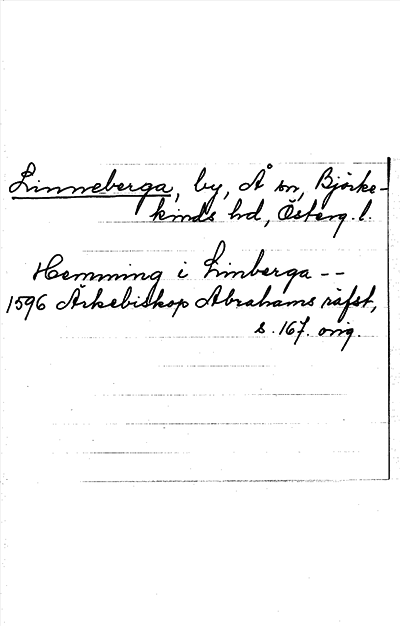 Linneberga, by, Å sn, Björke-
kinds hd, Österg. l.
Hemming i Linberga --
1596 Ärkebiskop Abrahams räfst,
s. 167. orig.